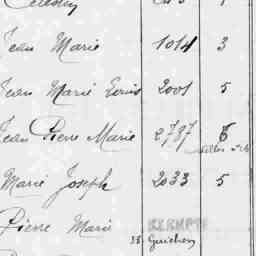 Jean Marie 1014 3
Jean Marie Louis 2001 5
Jean Pierre Marie 2787 6
Marie Joseph 2033 5
Pierre Marie EXEMPTÉ
35 Guichen